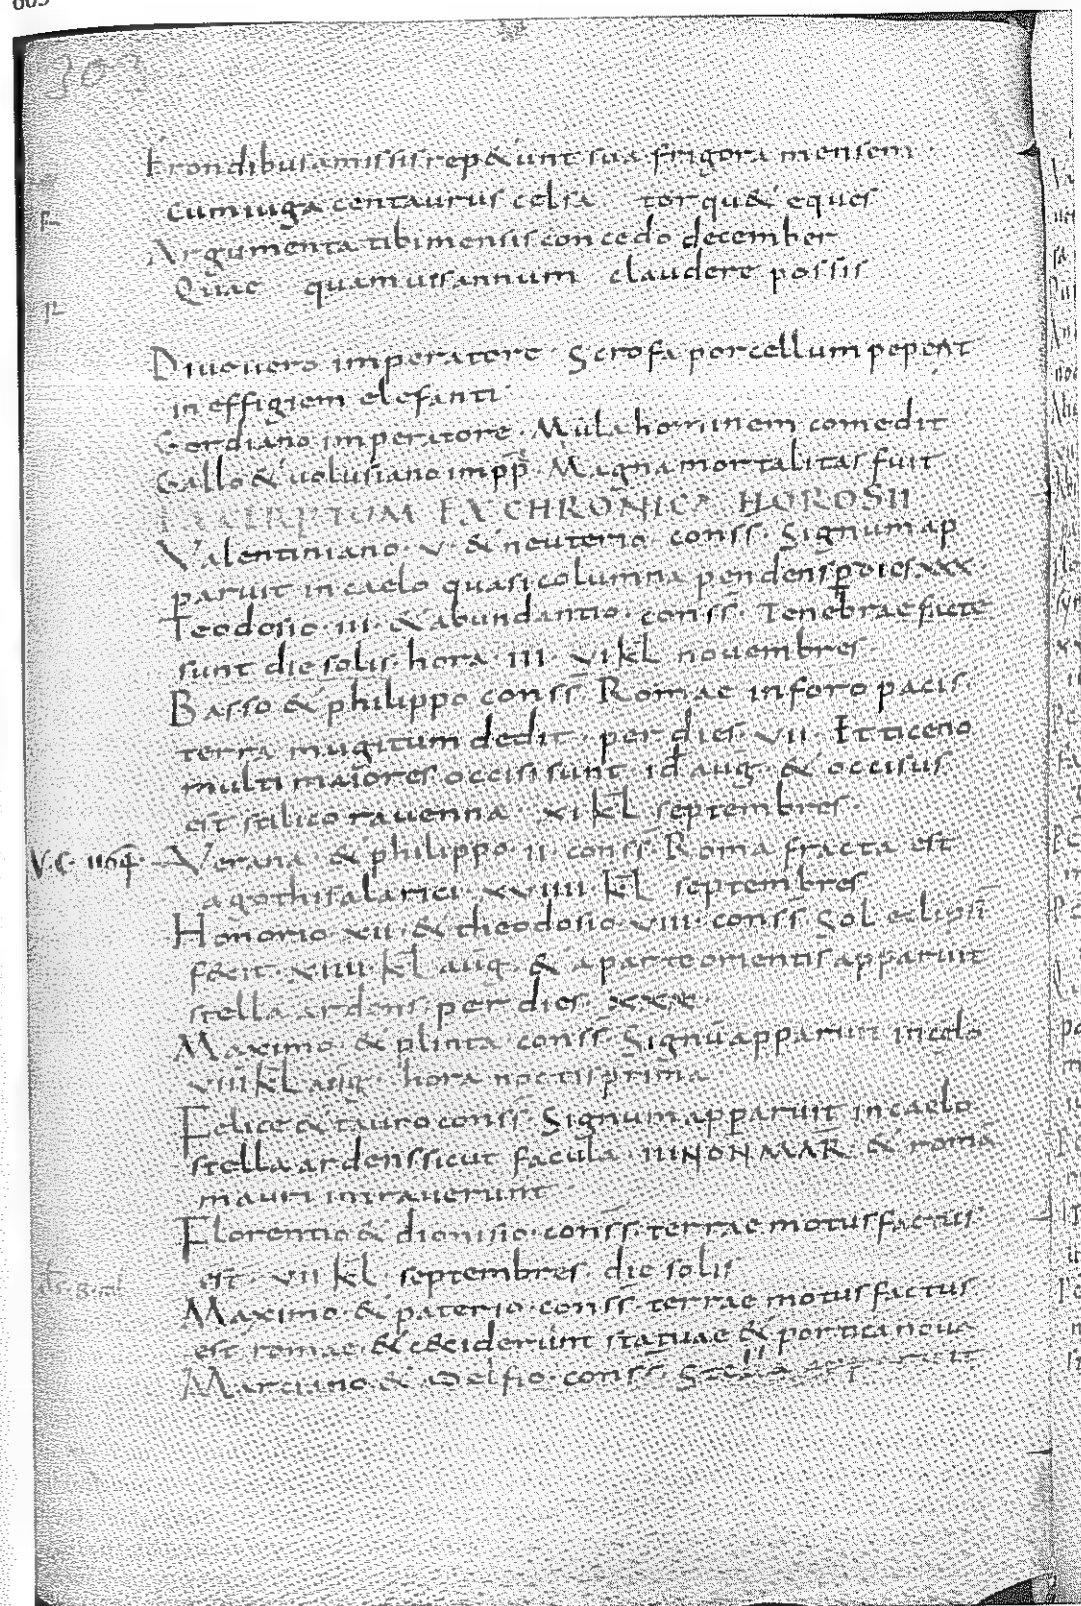 603
303
Frondibus amissis rep&unt sua frigora mensem
cum iuga centaurus celsa torqu& eques
Argumenta tibi mensis concedo december
Quae quamuis annum claudere possis
Diuo uero imperatore · Scrofa porcellum peperit
in effigiem elefanti
Gordiano imperatore · Mula hominem comedit
Gallo & uolusiano impp̄ · Magna mortalitas fuit
EXCERPTUM EX CHRONICA HOROSII
Valentiniano · v · & neuterio conss̄ · Signum ap
paruit in caelo quasi columna pendens p̄ dies · xxx ·
Teodosio · iii · & abundantio · conss̄ · Tenebrae facte
sunt die solis · hora · iii · vi kl̄ nouembres ·
Basso & philippo conss̄ Romae in foro pacis
terra mugitum dedit · per dies · vii · Et ticeno
multi maiores occisi sunt · id̄ aug̅ · & occisus
est stilico rauenna · xi kl̄ septembres ·
V.C. 1164 Verana · & philippo · ii · conss̄ Roma fracta est
a gothis alarici · xviiii · kl̄ septembres
Honorio · xii · & theodosio · viii · conss̄ Sol eclipsi
fecit · xiiii · kl̄ aug̅ · & a parte orientis apparuit
stella ardens · per dies · xxx ·
Maximo · & plinta · conss̄ · Signū apparuit in celo
viii kl̄ aug̅ · hora noctis prima
Felice & tauro conss̄ Signum apparuit in caelo
stella ardens sicut facula · iii NON̄ MAR̄ · & romā
mauri intrauerunt
Florentio & dionisio · conss̄ · terrae motus factus
est · vii kl̄ · septembres die solis
Maximo · & paterio · conss̄ · terrae motus factus
est romae · & ceciderunt statuae & portica noua
Marciano · & Delfio · conss̄ · Stella apparuit